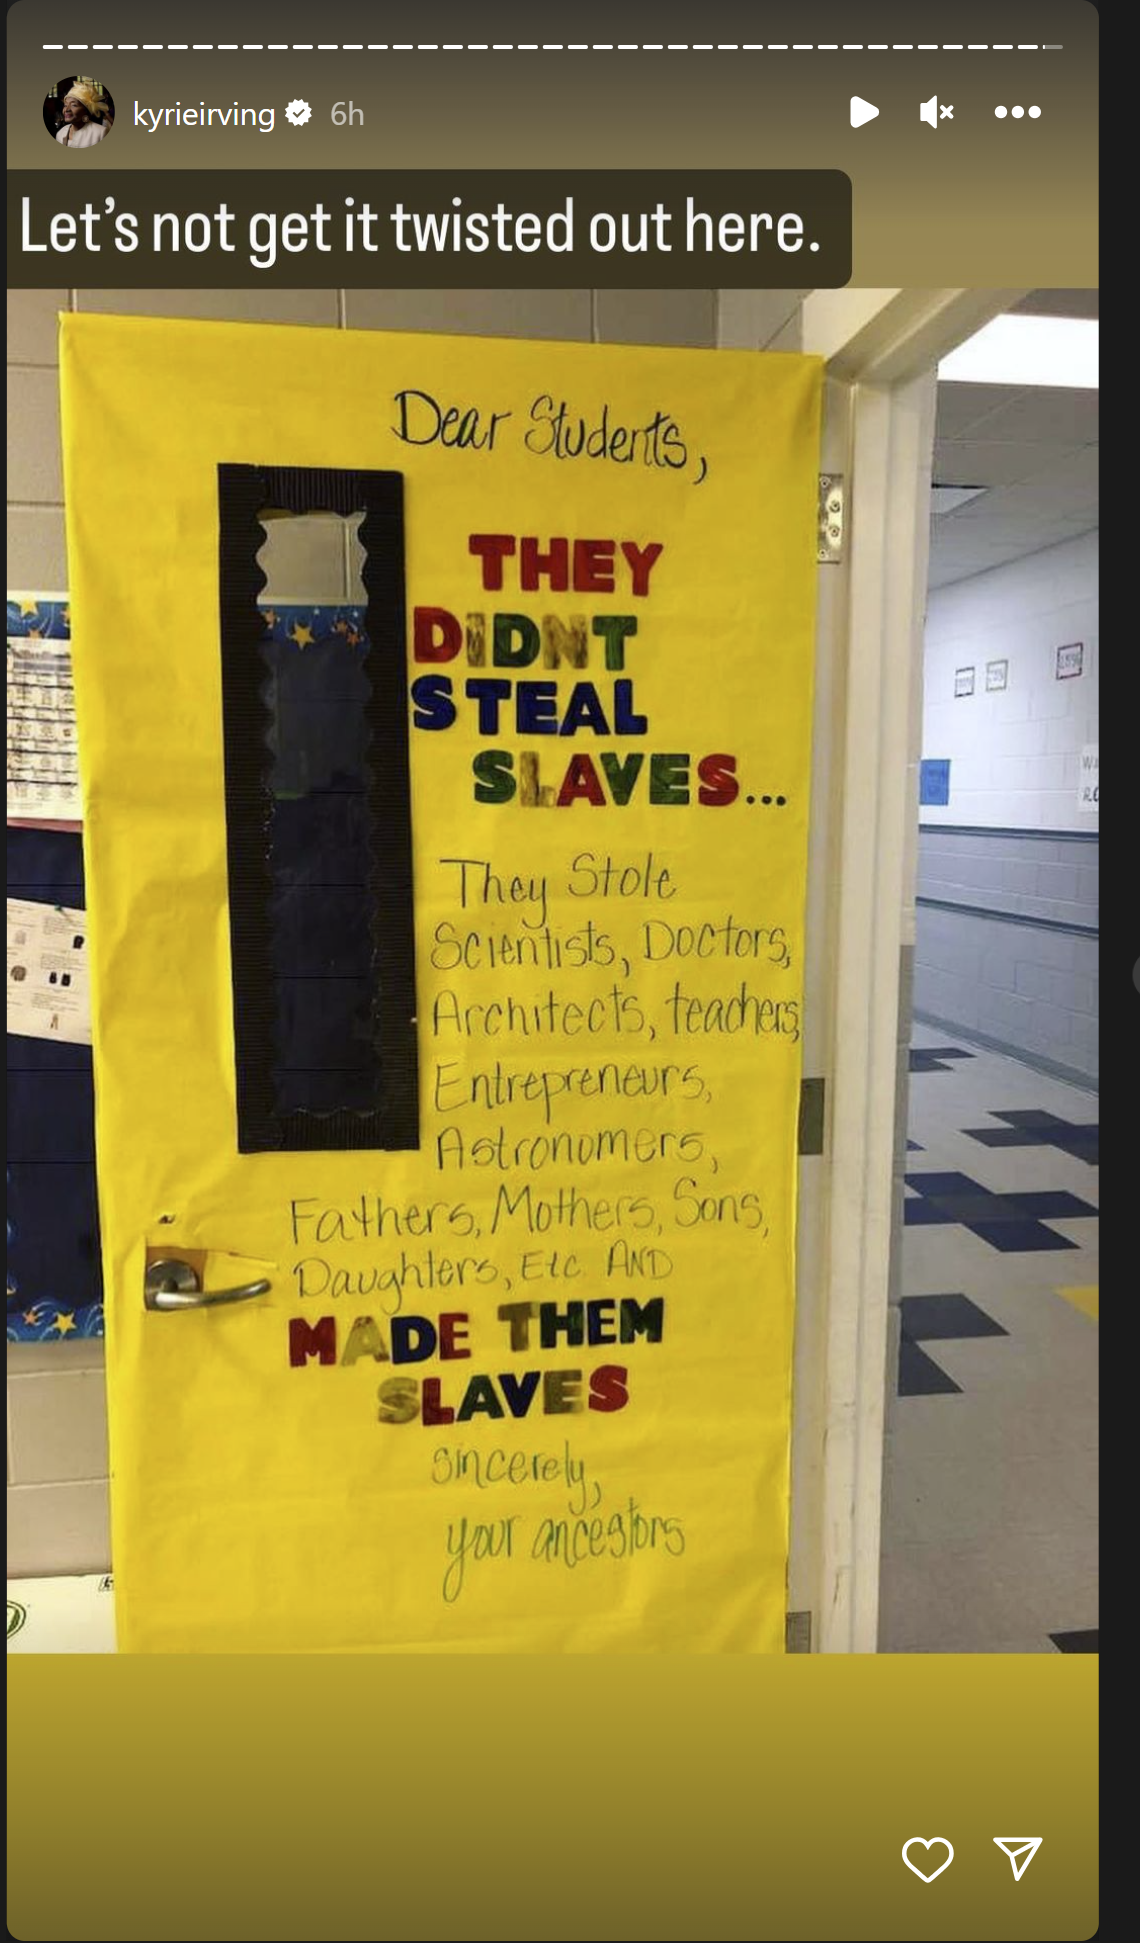 kyrieirving 6h
Let's not get it twisted out here.
Dear Students,
THEY
DIDNT
STEAL
SLAVES...
They Stole
Scientists, Doctors,
Architects, teachers,
Entrepreneurs,
Astronomers,
Fathers, Mothers, Sons,
Daughters, Etc AND
MADE THEM
SLAVES
sincerely,
your ancestors